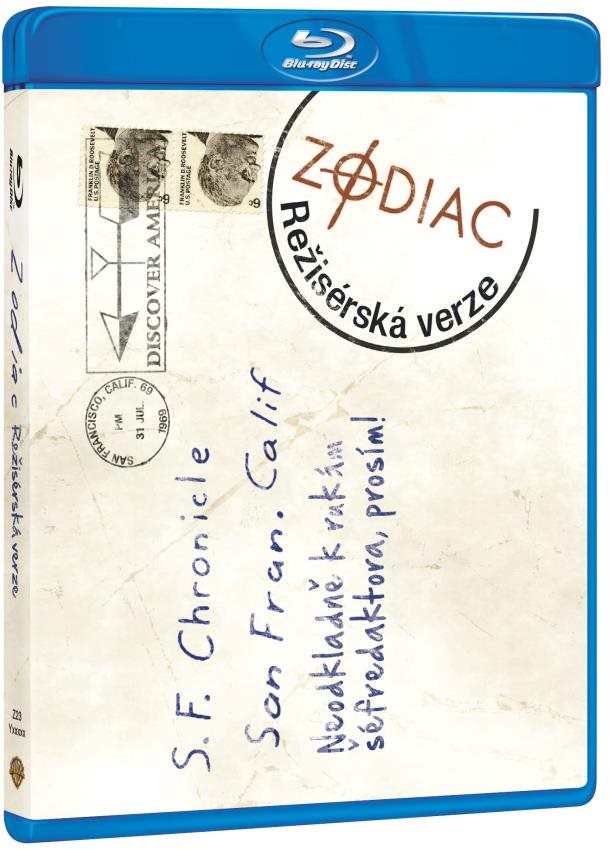 Blu-ray Disc
ZODIAC
Režisérská verze
FRANKLIN D. ROOSEVELT
U.S. POSTAGE
6¢
FRANKLIN D. ROOSEVELT
U.S. POSTAGE
6¢
DISCOVER AMERICA
SAN FRANCISCO, CALIF. 69
PM
31 JUL
1969
S.F. Chronicle
San Fran. Calif
Neodkladně k rukám
šéfredaktora, prosím!
Blu-ray
Zodiac Režisérská verze
Z23
Yxxxxx